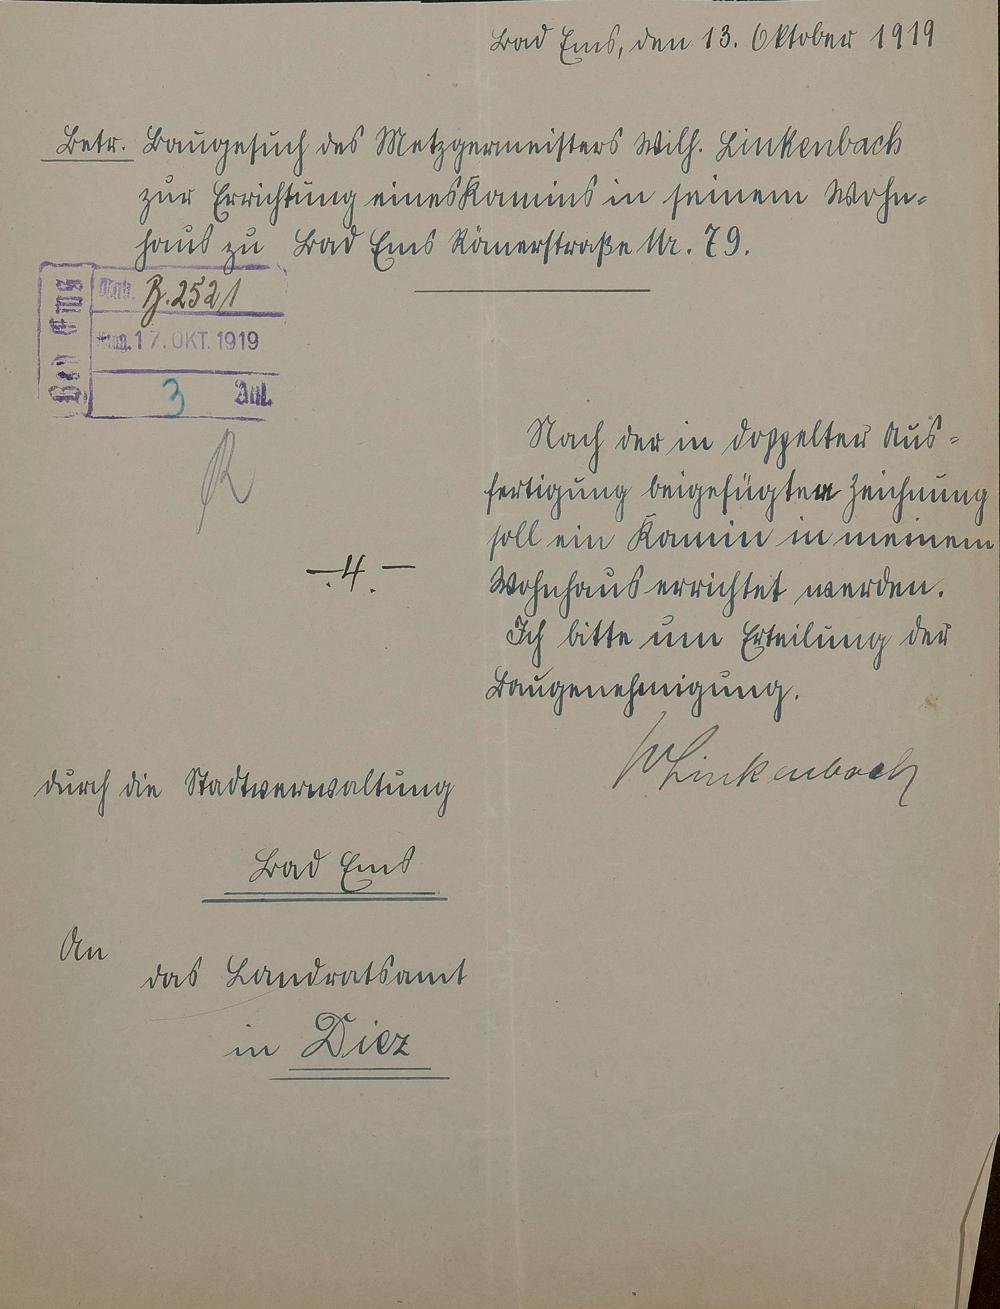 Bad Ems, den 13. Oktober 1919
Betr. Baugesuch des Metzgermeisters Wilh. Linkenbach
zur Errichtung eines Kamins in seinem Wohn-
haus zu Bad Ems Römerstraße Nr. 79.
Bad Ems
B. 2521
Eing. 17. OKT. 1919
3 Anl.
Nach der in doppelter Aus-
fertigung beigefügten Zeichnung
soll ein Kamin in meinem
Wohnhaus errichtet werden.
Ich bitte um Erteilung der
Baugenehmigung.
- 4. -
W Linkenbach
durch die Stadtverwaltung
Bad Ems
An
das Landratsamt
in Diez